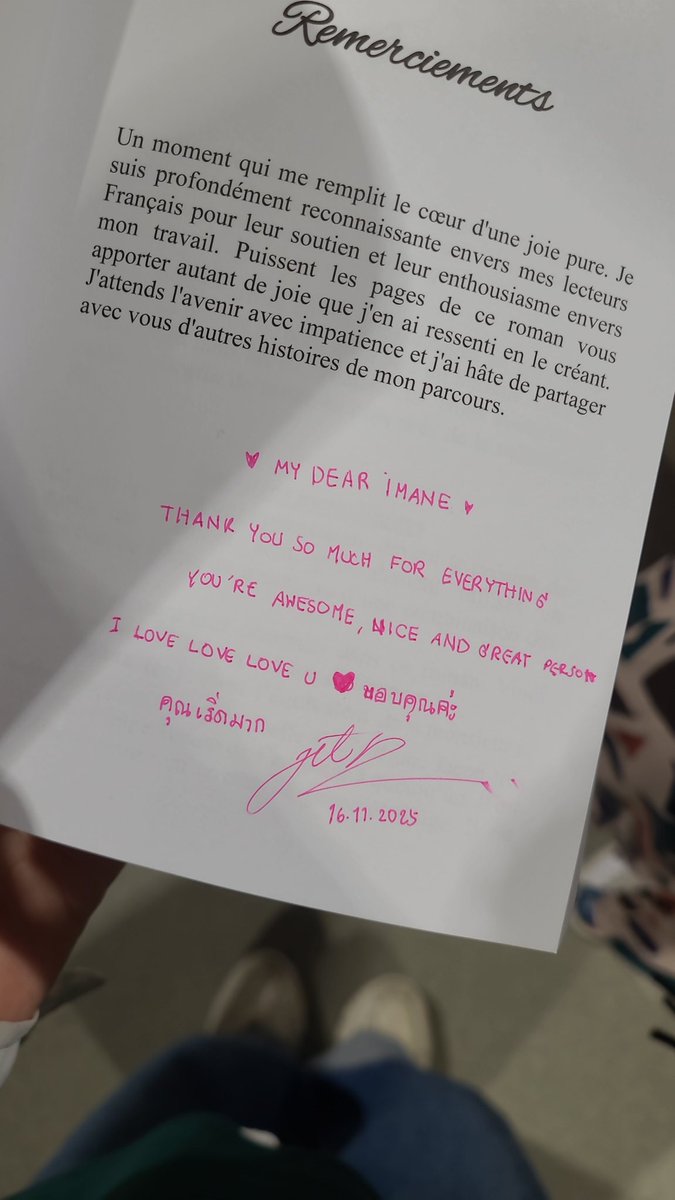 Remerciements
Un moment qui me remplit le cœur d'une joie pure. Je
suis profondément reconnaissante envers mes lecteurs
Français pour leur soutien et leur enthousiasme envers
mon travail. Puissent les pages de ce roman vous
apporter autant de joie que j'en ai ressenti en le créant.
J'attends l'avenir avec impatience et j'ai hâte de partager
avec vous d'autres histoires de mon parcours.
♥ MY DEAR iMANE ♥
THANK YOU SO MUCH FOR EVERYTHING
YOU'RE AWESOME, NICE AND GREAT PERSON
I LOVE LOVE LOVE U ♥ ขอบคุณค่ะ
คุณเริ่ดมาก
16.11.2025